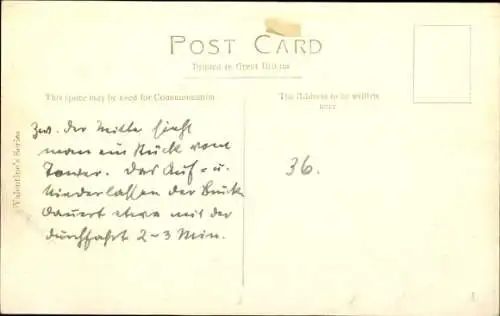 POST CARD
Printed in Great Britain
This space may be used for Communication
The Address to be written
here
Valentine's Series
Zw. der Mitte sieht
man ein Stück vom
Tower. Das Auf- u.
Niederlassen der Brück
dauert etwa mit der
durchfahrt 2-3 Min.
36.